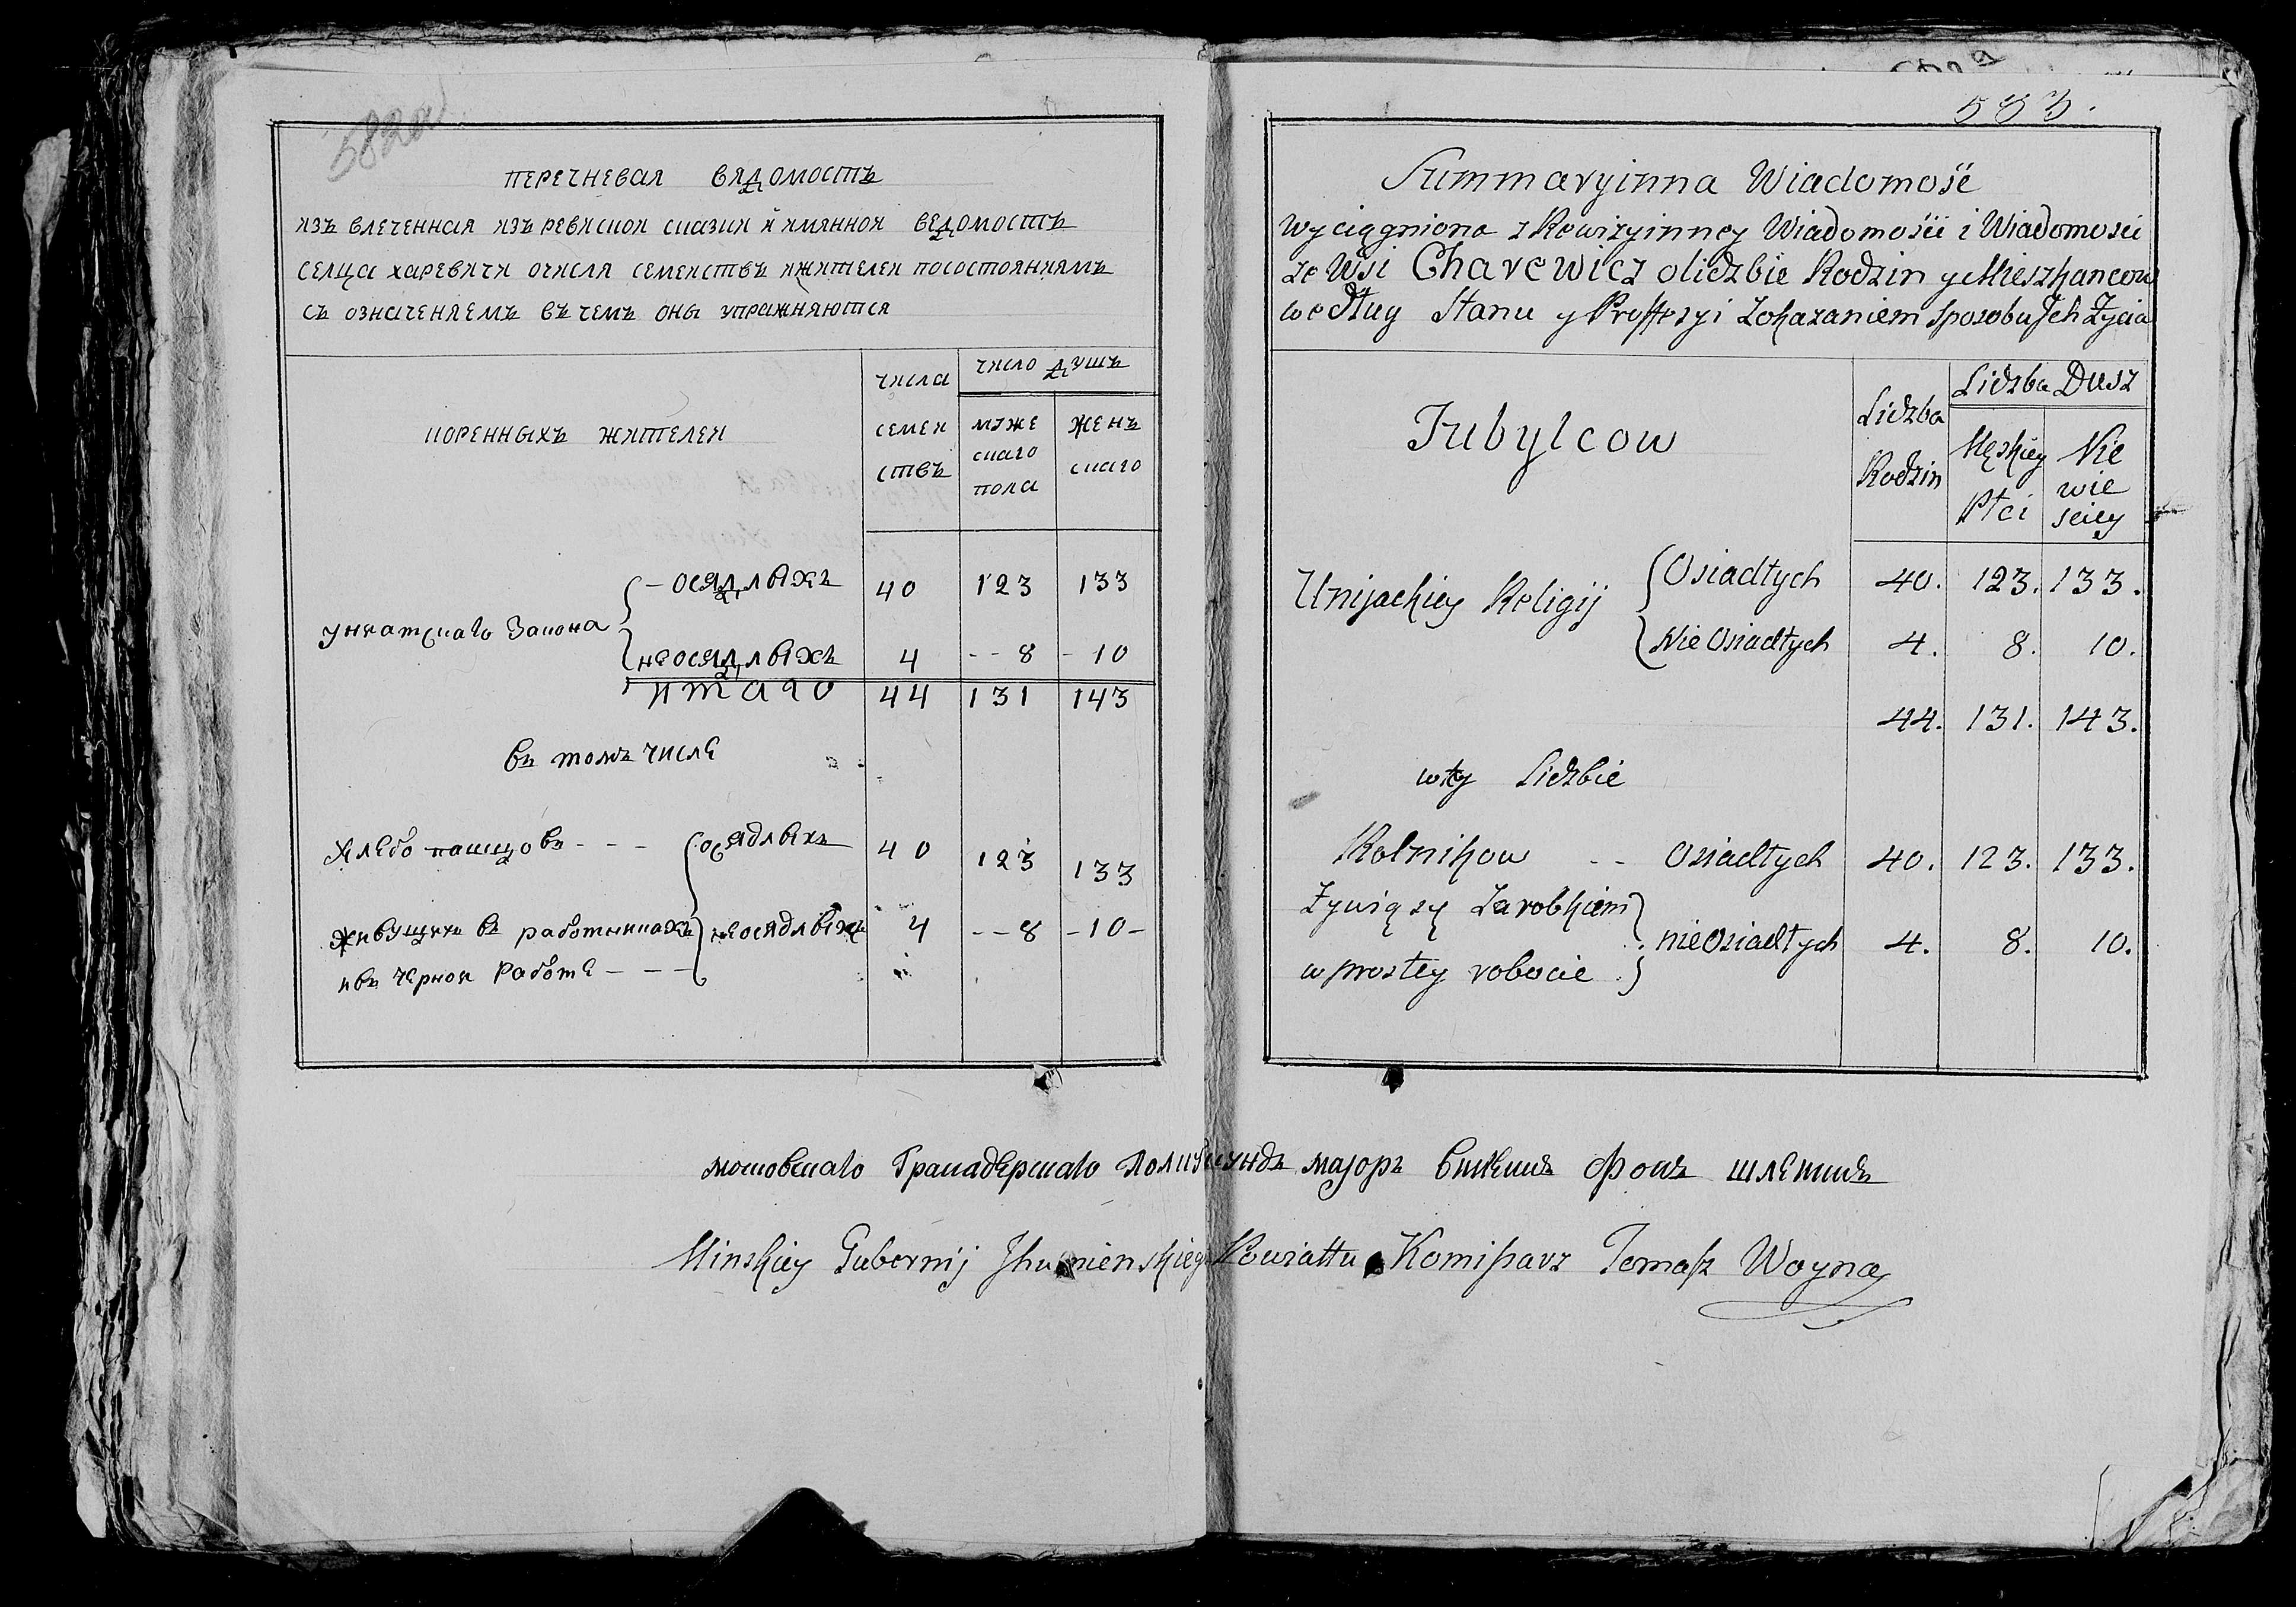 582a
перечневая вядомостъ
изъ влеченная изъ ревиской сказки и имянной ведомостъ
селца харевичи очисля семействъ ижителей посостояниямъ
съ означениемъ въ чемъ оны упражняются
коренныхъ жителей
числа семействъ
число душъ
мужескаго пола
женъскаго
униатскаго закона
осядлыхъ 40 123 133
неосядлыхъ 4 -- 8 - 10
итаго 44 131 143
въ томъ числе
хлебо пашцовъ - - - осядлыхъ 40 123 133
живущихъ въ работникахъ неосядлыхъ 4 -- 8 - 10 -
ивъ черной работе - - -
583.
Summaryinna Wiadomość
wyciągniona z Rewizyinney Wiadomości i Wiadomosci
ze Wsi Charewicz olidzbie Rodzin y Mieszkancow
według Stanu y Proffesyi zokazaniem sposobu Jch Życia
Tubylcow
Lidzba Rodzin
Lidzba Dusz
Męskiey Płci
Niewiesciey
Unijackiey Religij
Osiadłych 40. 123. 133.
Nie Osiadłych 4. 8. 10.
44. 131. 143.
wtey Lidzbie
Rolnikow - - Osiadłych 40. 123. 133.
Żywiąsych Zarobkiem
nieosiadłych 4. 8. 10.
w prostey robocie
московскаго Гранадерскаго Полку секундъ маjоръ фонъ
Minskiey Gubernij Jhumienskiego Powiattu Komissarz Tomasz Woyna